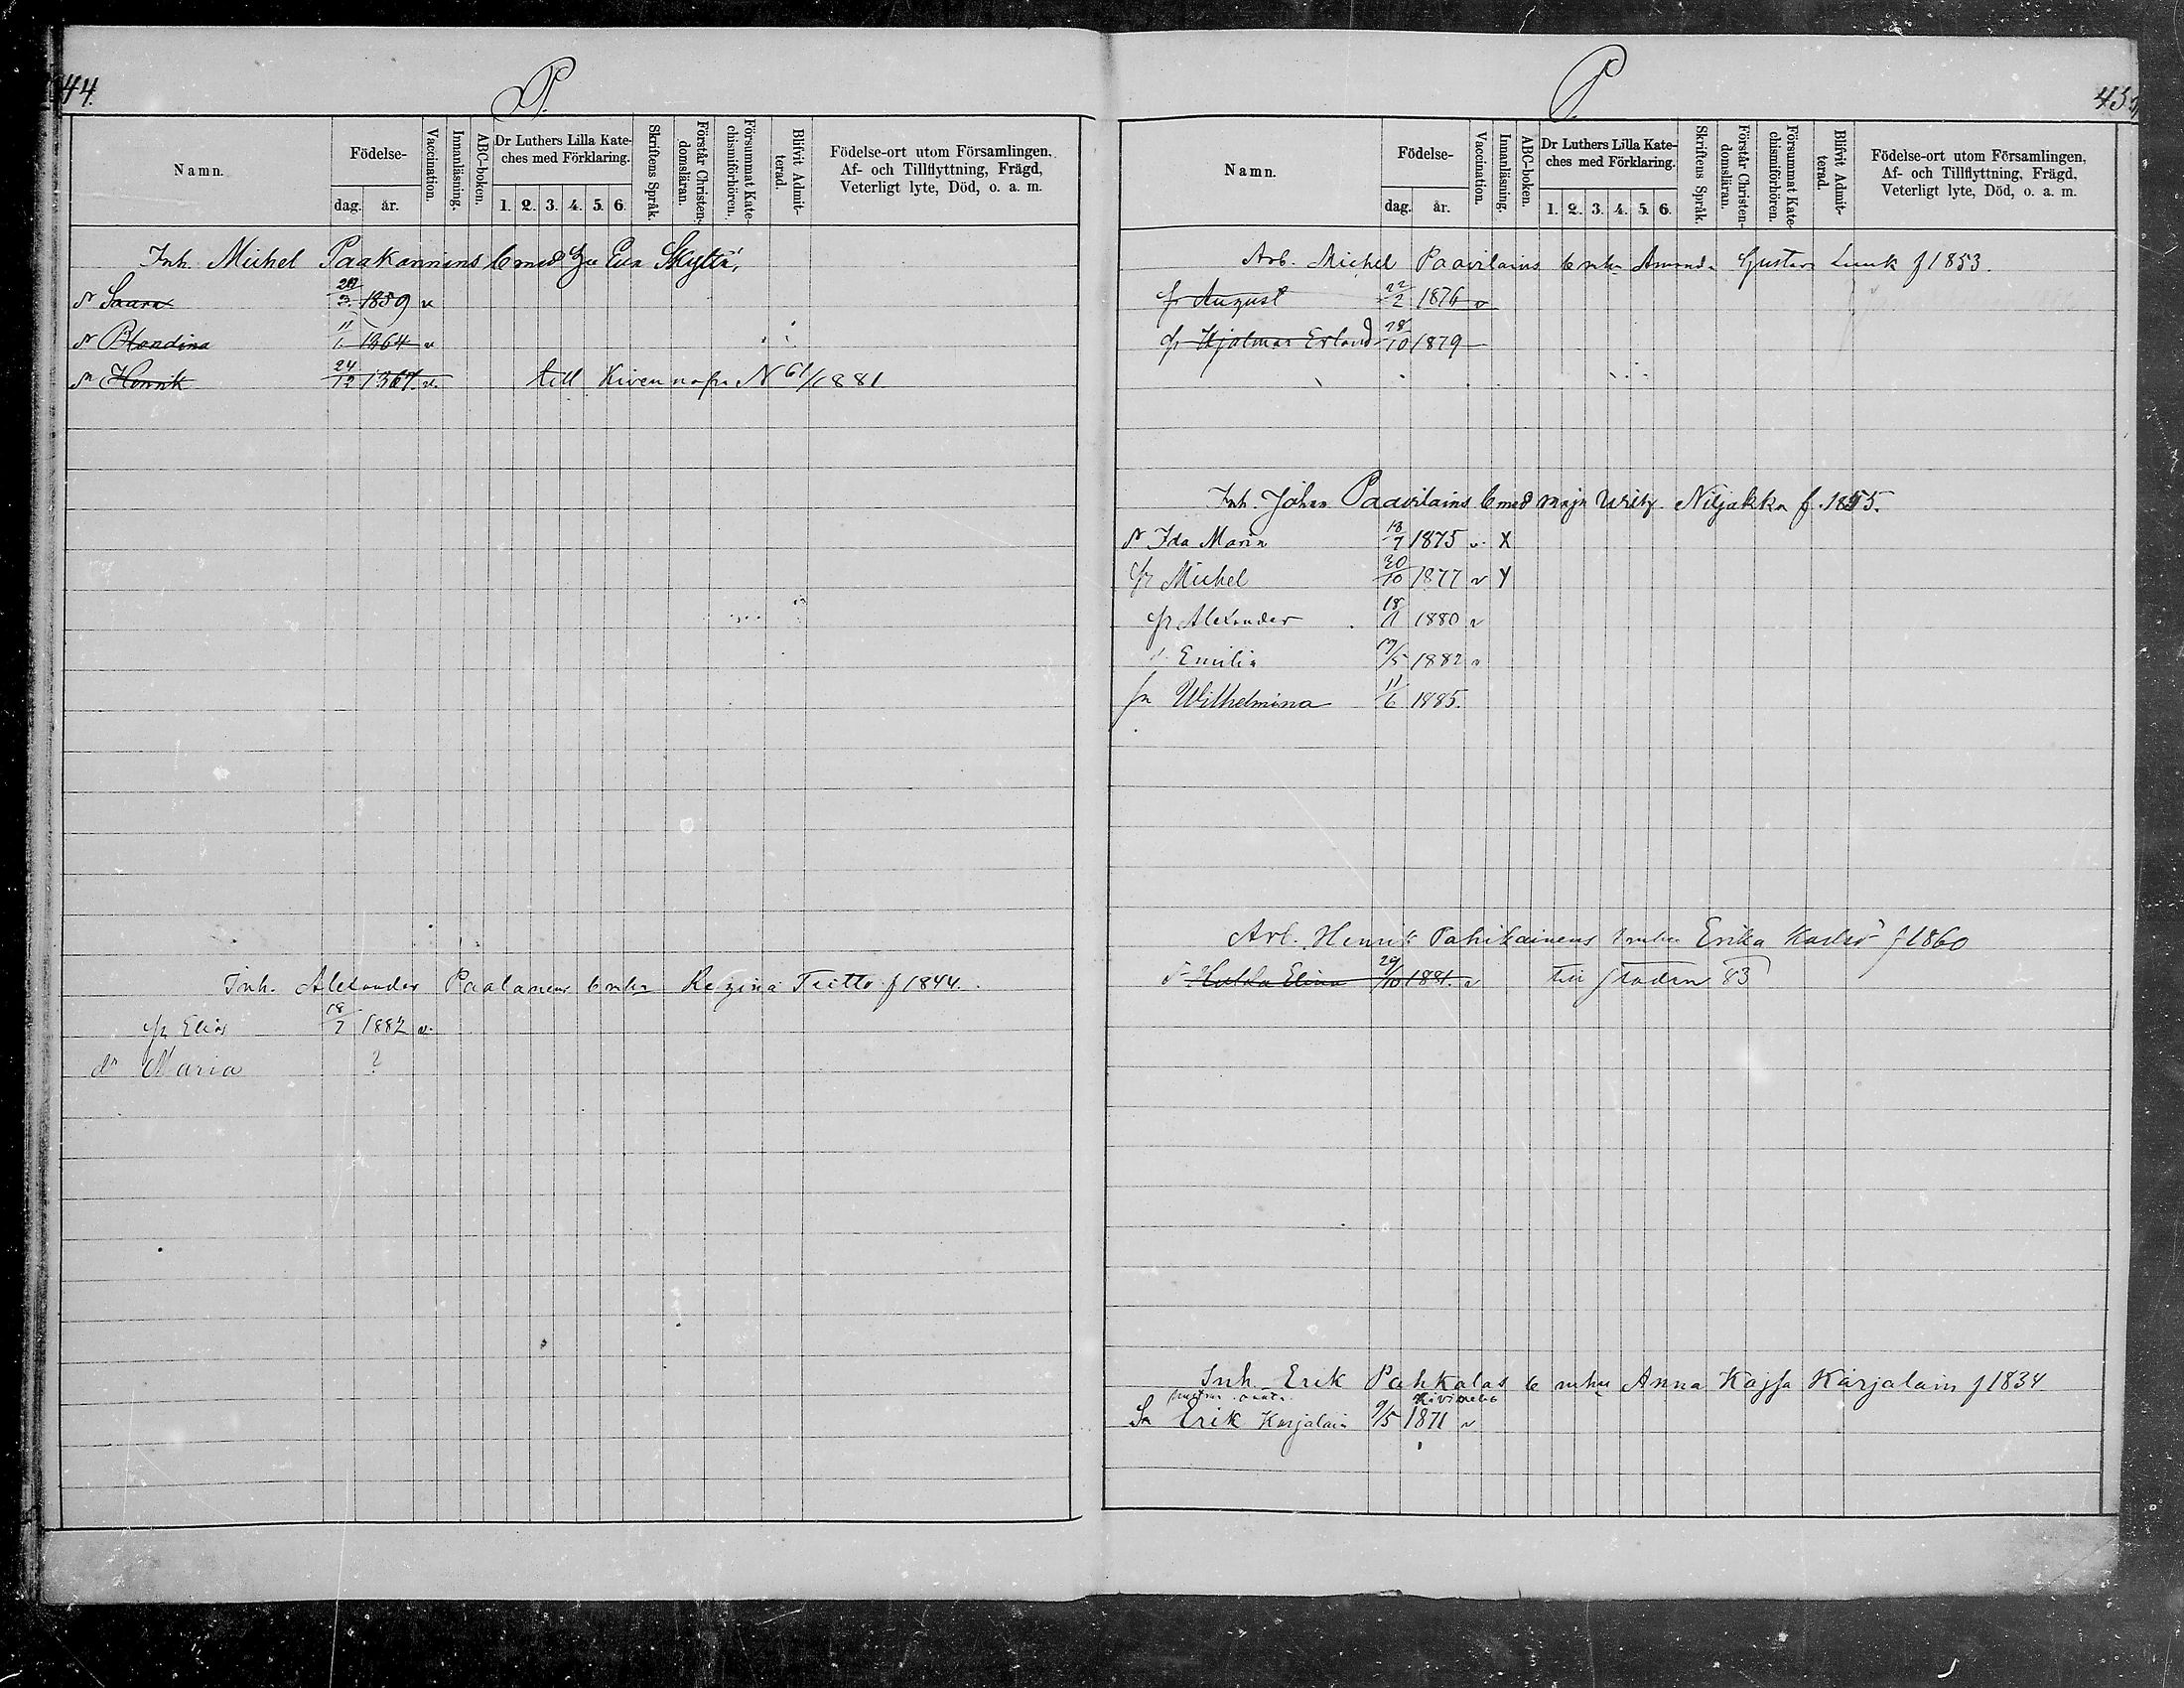 44.
P.
Namn.
Födelse-
dag.
år.
Vaccination.
Innanläsning.
ABC-boken.
Dr Luthers Lilla Kate-
ches med Förklaring.
1. 2. 3. 4. 5. 6.
Skriftens Språk.
Förstår Christen-
domsläran.
Försummat Kate-
chismiförhören.
Blifvit Admit-
terad.
Födelse-ort utom Församlingen,
Af- och Tillflyttning, Frägd,
Veterligt lyte, Död, o. a. m.
Inh. Michel Paakannens b med Eva Skyttä,
Saara 3 1859 v
Blondina 11/1 1864 v
Henrik 24/12 1867 v till Kivennapa N 61/1881
Inh. Alexander Paalanens Regina Teitto f 1844.
Elias 18/7 1882 v
dr Maria ?
P.
Namn.
Födelse-
dag.
år.
Vaccination.
Innanläsning.
ABC-boken.
Dr Luthers Lilla Kate-
ches med Förklaring.
1. 2. 3. 4. 5. 6.
Skriftens Språk.
Förstår Christen-
domsläran.
Försummat Kate-
chismiförhören.
Blifvit Admit-
terad.
Födelse-ort utom Församlingen,
Af- och Tillflyttning, Frägd,
Veterligt lyte, Död, o. a. m.
Arb. Michel Paavilains Amanda Gustava f 1853.
August 22/2 1876 v
Hjalmar Erland 28/10 1879
Inh. Johan Paavilains b med Maja Niljakka f. 1855.
Ida Maria 18/7 1875 v X
Michel 20/10 1877 v Y
Alexander 18/11 1880 v
Emilia 1882 v
Wilhelmina 11/6 1885.
Arb. Henrik Pahikainens Erika f 1860
Elina 29/10 1881. v till staden 83
Inh. Erik Pahkalas Anna Kajsa Karjalain f 1834
Erik Karjalain 9/5 1871 v